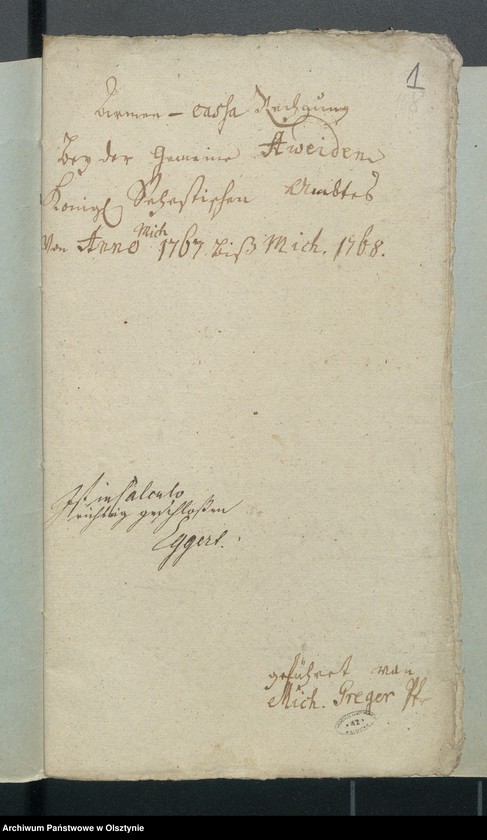 1
Armen-cassa Rechnung
Bey der Gemeine Aweiden
Königl Sehestischen Ambtes
Von Anno Mich 1767. biß Mich. 1768.
Ist in Calculo
richtig geschloßen
Eggert.
geführet von
Mich. Greger Pfr
Archiwum Państwowe w Olsztynie